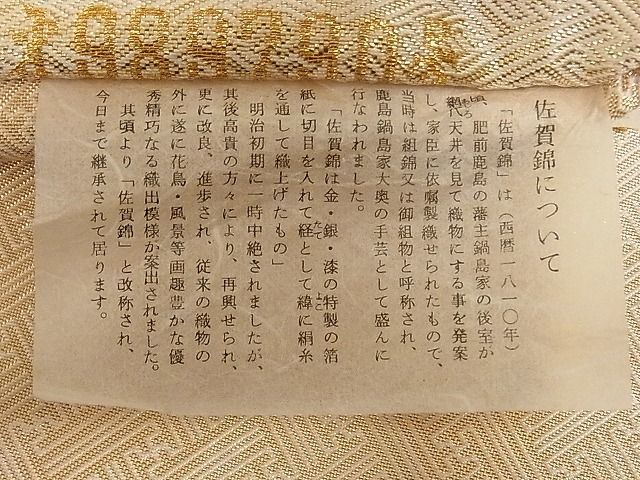 佐賀錦について
「佐賀錦」は(西暦一八一〇年)
頃、肥前鹿島の藩主鍋島家の後室が
網代天井を見て織物にする事を発案
し、家臣に依嘱製織せられたもので、
当時は組錦又は御組物と呼称され、
鹿島鍋島家大奥の手芸として盛んに
行なわれました。
「佐賀錦は金・銀・漆の特製の箔
紙に切目を入れて経として緯に絹糸
を通して織上げたもの」
明治初期に一時中絶されましたが、
其後高貴の方々により、再興せられ、
更に改良、進歩され、従来の織物の
外に遂に花鳥・風景等画趣豊かな優
秀精巧なる織出模様が案出されました。
其頃より「佐賀錦」と改称され、
今日まで継承されて居ります。